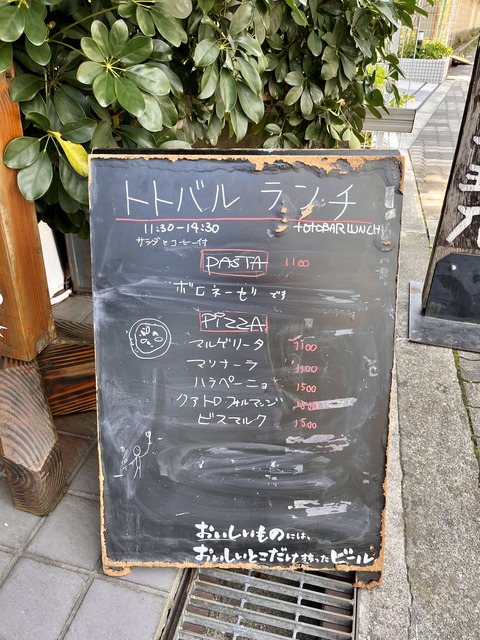 トトバル ランチ
11:30-14:30 TOTOBAR LUNCH
サラダとコーヒー付
PASTA 1100
ボロネーゼ です
PIZZA
マルゲリータ 1100
マリナーラ 1100
ハラペーニョ 1500
クアトロフォルマッジ
ビスマルク 1500
おいしいものには、
おいしいとこだけ搾ったビール